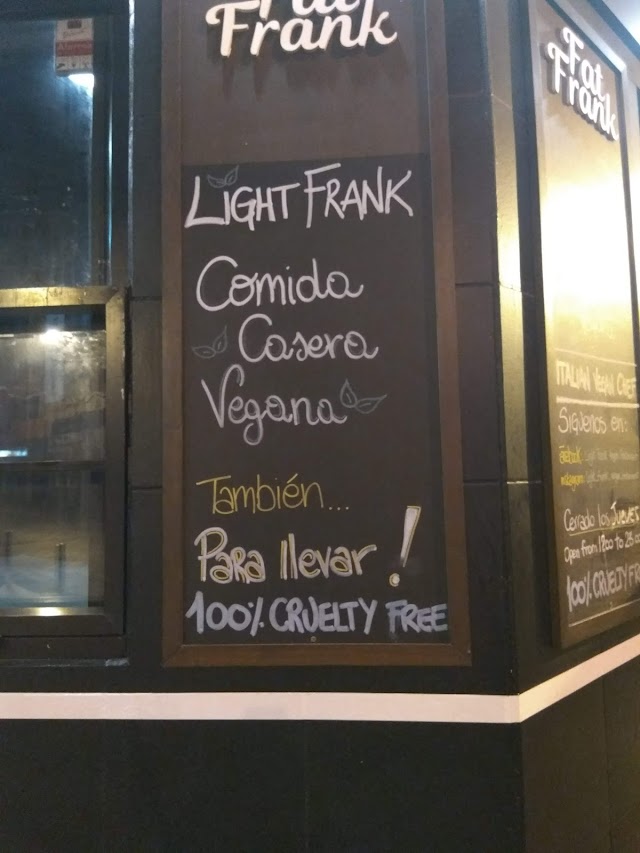 Fat
Frank
LIGHT FRANK
Comida
Casera
Vegana
También...
PARA llevar!
100% CRUELTY FREE
Fat
Frank
ITALIAN VEGAN CHEF
Síguenos en:
Cerrado los JUEVES
Open from
100% CRUELTY FRE